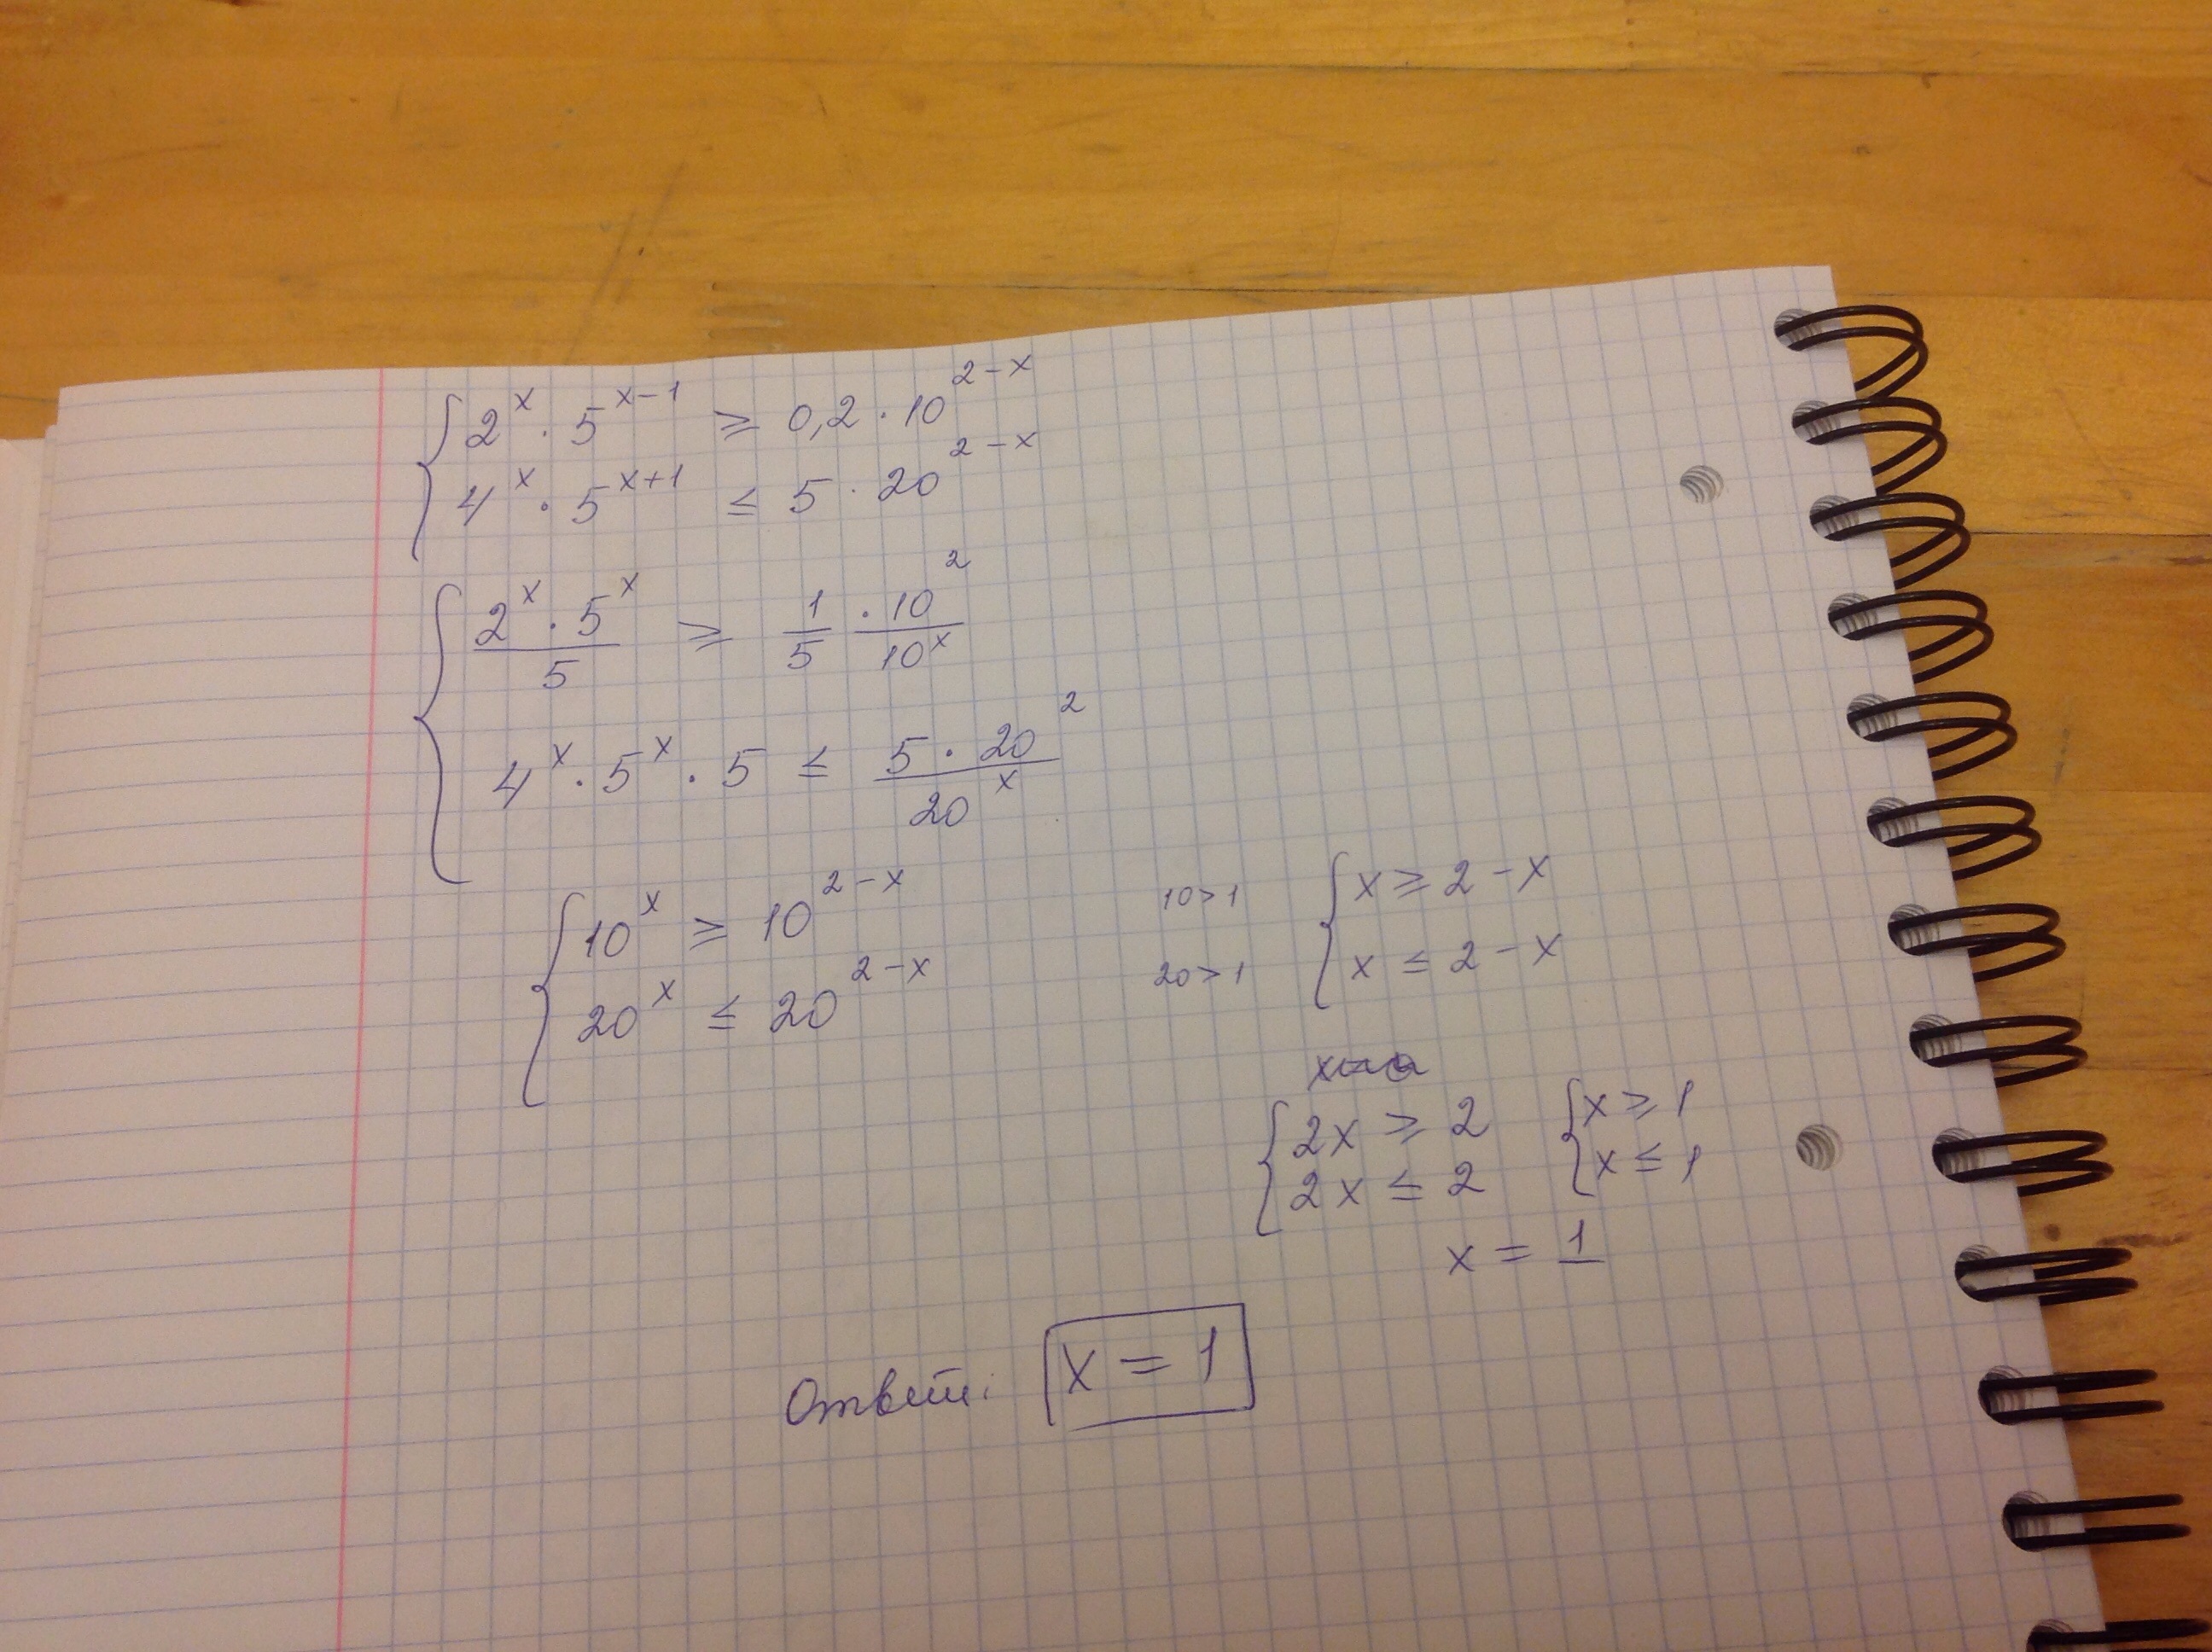 2^x · 5^(x-1) ≥ 0,2 · 10^(2-x)
4^x · 5^(x+1) ≤ 5 · 20^(2-x)
(2^x · 5^x)/5 ≥ 1/5 · 10^2/10^x
4^x · 5^x · 5 ≤ (5 · 20^2)/20^x
10^x ≥ 10^(2-x) 10>1 x ≥ 2-x
20^x ≤ 20^(2-x) 20>1 x ≤ 2-x
2x ≥ 2 x ≥ 1
2x ≤ 2 x ≤ 1
x = 1
Ответ: x = 1